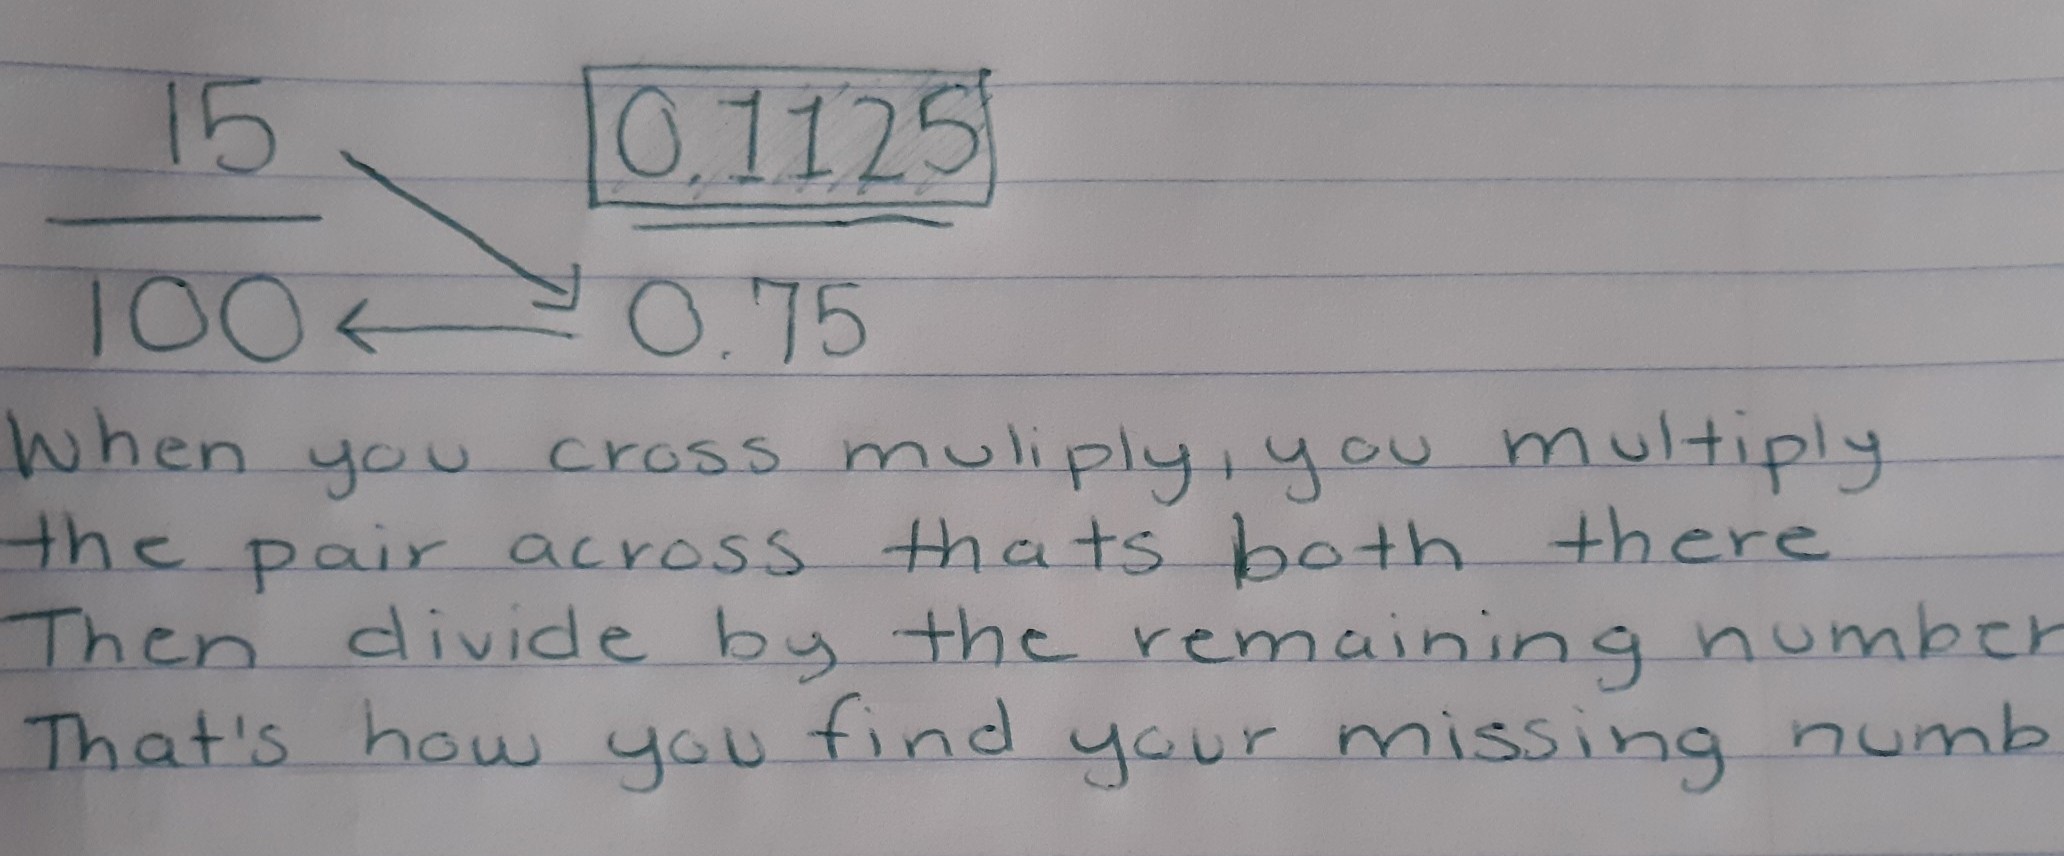 15 0.1125
100 0.75
When you cross muliply, you multiply
the pair across thats both there
Then divide by the remaining number
That's how you find your missing numb